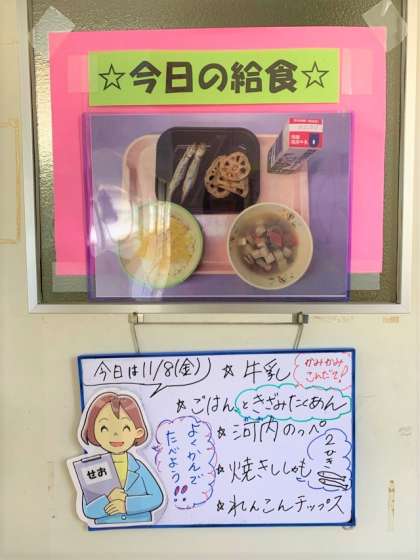 ☆今日の給食☆
今日は11/8(金)
☆ 牛乳
かみかみ
こんだて!
☆ ごはんときざみたくあん
☆ 河内のっぺ
☆ 焼きししゃも
2ひき
☆ れんこんチップス
よくかんで
たべよう!!
せお